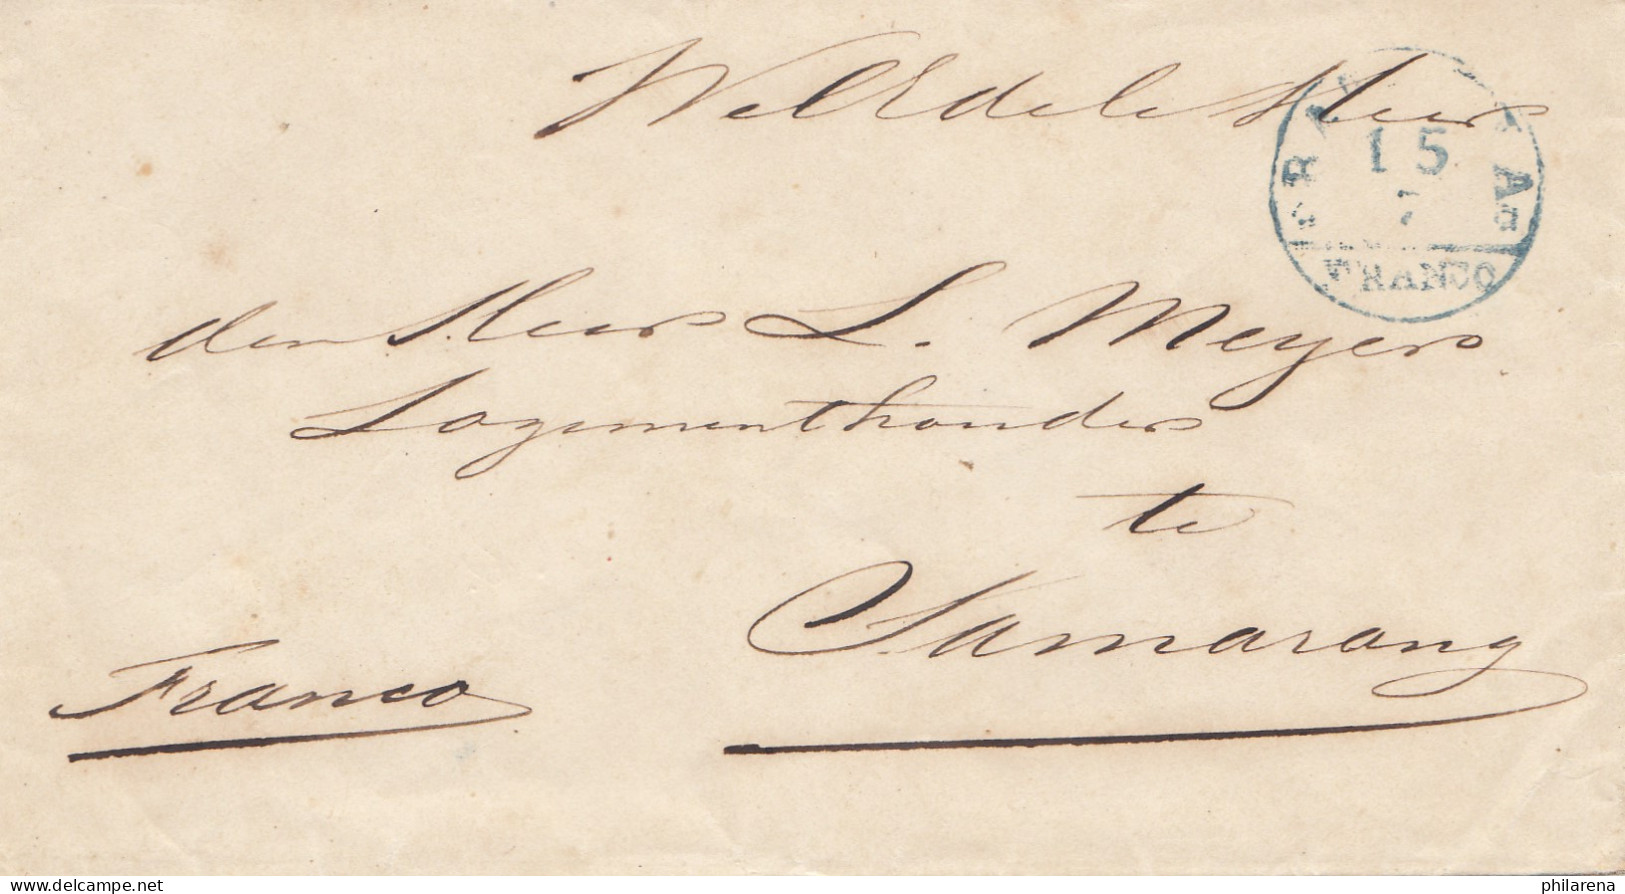 Wel Edele Heer
15
7
FRANCO
den Heer L. Meyer
Logementhouder
te
Samarang
Franco
delcampe.net
philarena